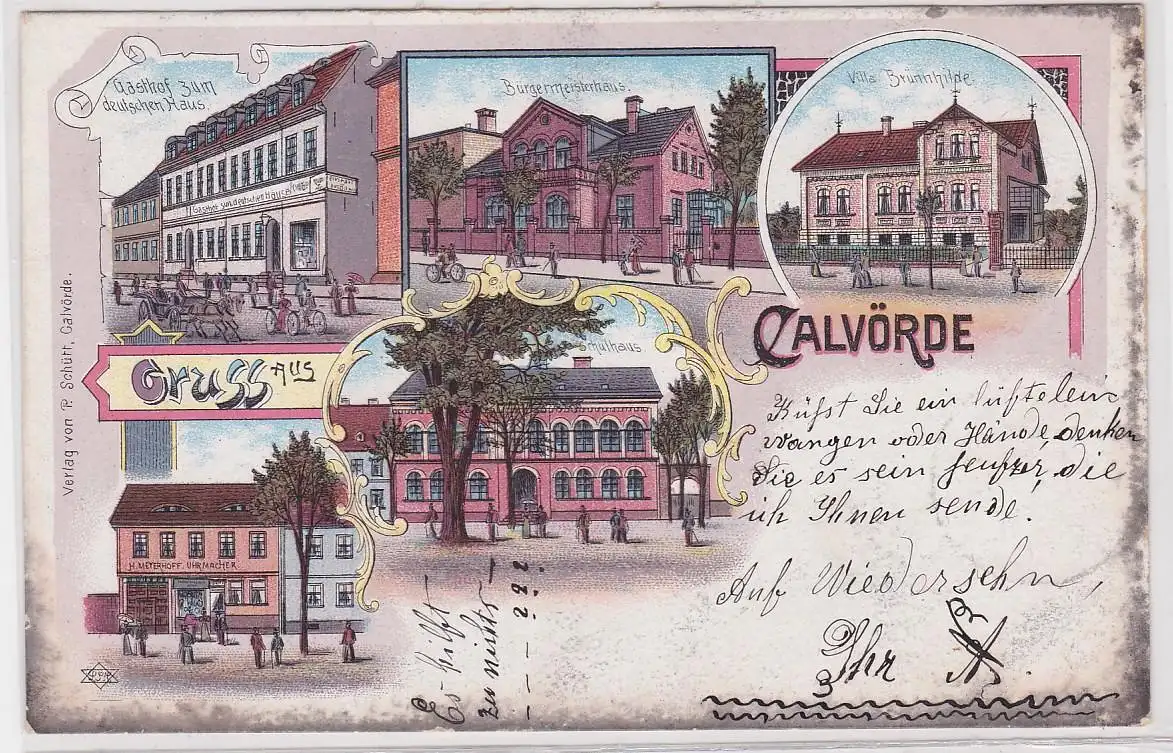 Gasthof zum
deutschen Haus.
Bürgermeisterhaus.
Villa Brünnhilde.
Gasthof zum deutschen Hause
Verlag von P. Schürt, Calvörde.
Gruss aus
Schulhaus.
CALVÖRDE
H. MEYERHOFF. UHRMACHER
Küßt Sie ein lüftelein
Wangen oder Hände, denken
Sie es sein seufzer, die
ich Ihnen sende.
Auf Wiedersehn,
Ihr
Es hilft
zu nichts
— — ? ? ?